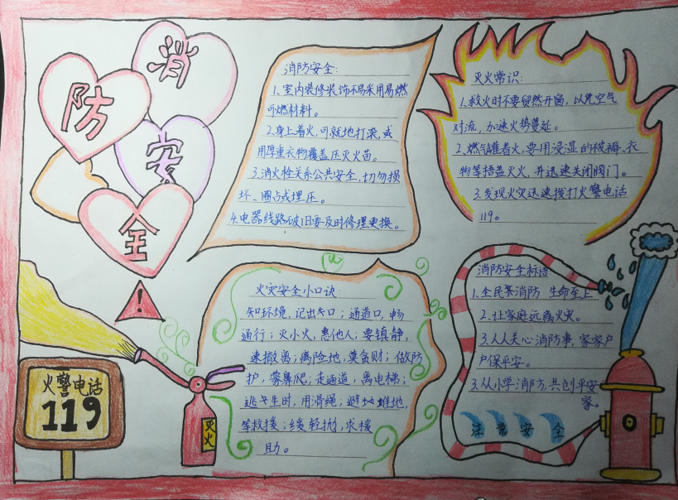 消
防
安
全
!
火警电话
119
灭火
消防安全:
1.室内装修装饰不易采用易燃
可燃材料。
2.身上着火,可就地打滚,或
用厚重衣物覆盖压灭火苗。
3.消火栓关系公共安全,切勿损
坏、圈占或埋压。
4.电器线路破旧要及时修理更换。
灭火常识:
1.救火时不要贸然开窗,以免空气
对流,加速火势蔓延。
2.燃气罐着火,要用浸湿的被褥、衣
物等捂盖灭火,并迅速关闭阀门。
3.发现火灾迅速拨打火警电话
119。
火灾安全小口诀:
知环境,记出口;通道口,畅
通行;灭小火,惠他人;要镇静,
速撤离;离险地,莫贪财;做防
护,蒙鼻爬;走通道,离电梯;
逃生时,用滑绳;避 地,
等救援;缓轻抛,求援
助。
消防安全标语
1.全民聚消防 生命至上
2.让家庭远离火灾。
3.人人关心消防事,家家户
户保平安。
3.从小学消防,共创平安
家。
安全